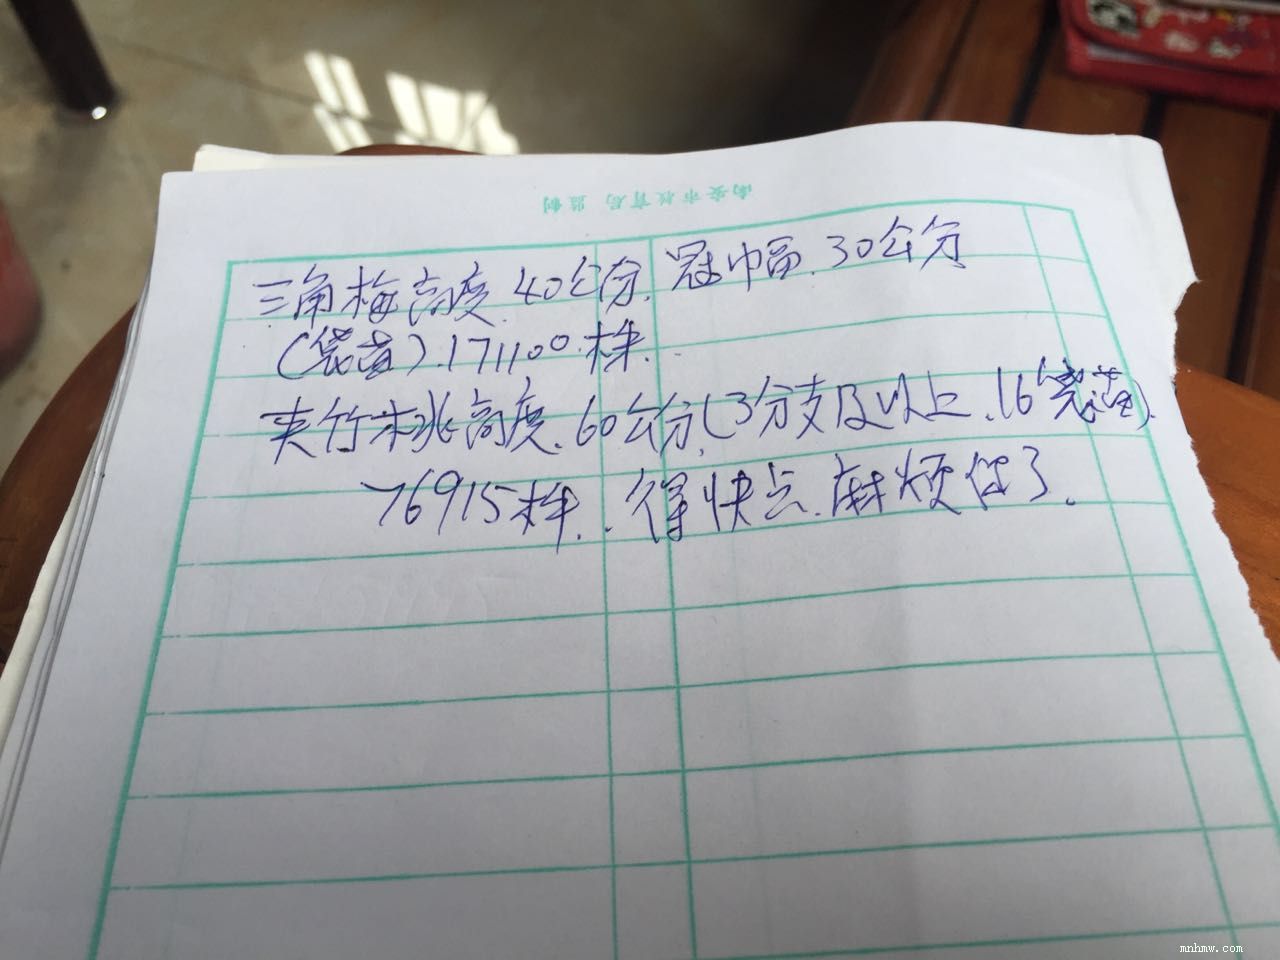 南安市教育局 监制
三角梅高度.40公分.冠巾幅.30公分
(袋苗).171100.株.
夹竹桃高度.60公分.(3分支及以上.16袋苗).
76915株..得快点.麻烦您了.
mnhmw.com